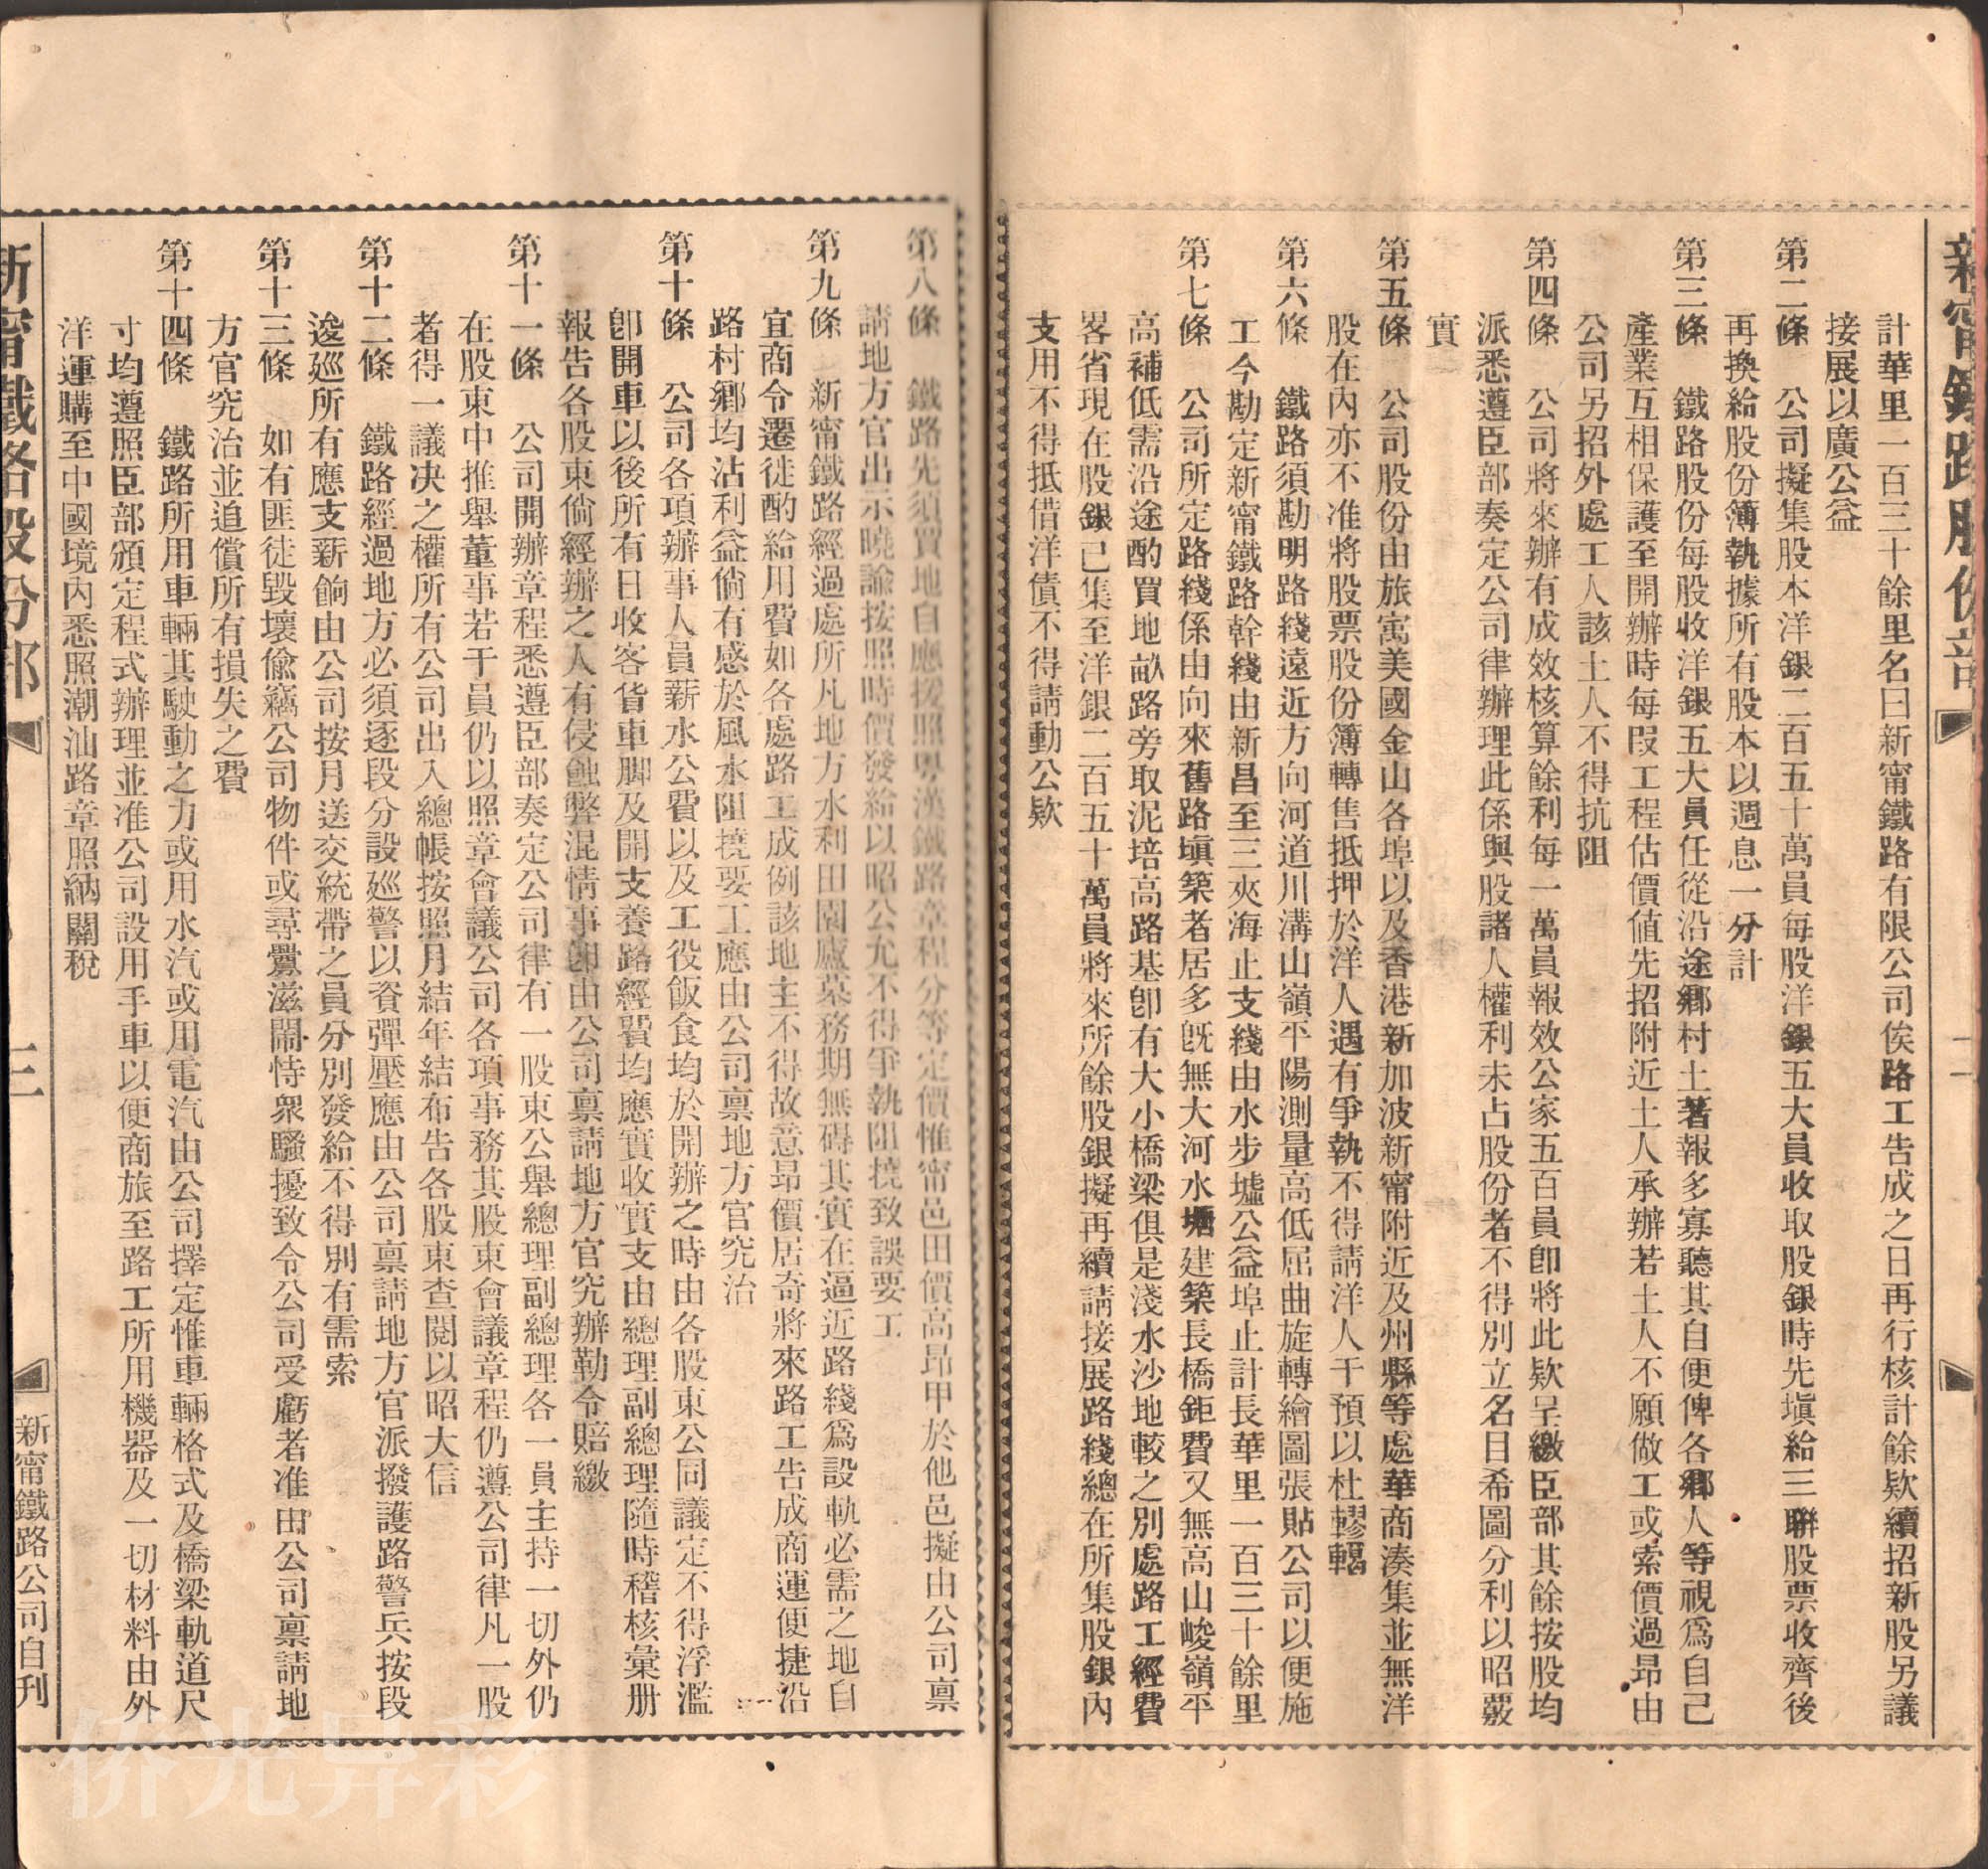 新甯鐵路股份部
計華里一百三十餘里名曰新甯鐵路有限公司俟路工告成之日再行核計餘欵續招新股另議
接展以廣公益
第二條　公司擬集股本洋銀二百五十萬員每股洋銀五大員收取股銀時先塡給三聯股票收齊後
再換給股份簿執據所有股本以週息一分計
第三條　鐵路股份每股收洋銀五大員任從沿途鄉村土著報多寡聽其自便俾各鄉人等視爲自己
產業互相保護至開辦時每段工程估價值先招附近土人承辦若土人不願做工或索價過昂由
公司另招外處工人該土人不得抗阻
第四條　公司將來辦有成效核算餘利每一萬員報效公家五百員卽將此欵呈繳臣部其餘按股均
派悉遵臣部奏定公司律辦理此係與股諸人權利未占股份者不得別立名目希圖分利以昭覈
實
第五條　公司股份由旅寓美國金山各埠以及香港新加波新甯附近及州縣等處華商湊集並無洋
股在內亦不准將股票股份簿轉售抵押於洋人遇有爭執不得請洋人干預以杜轇轕
第六條　鐵路須勘明路綫遠近方向河道川溝山嶺平陽測量高低屈曲旋轉繪圖張貼公司以便施
工今勘定新甯鐵路幹綫由新昌至三夾海止支綫由水步墟公益埠止計長華里一百三十餘里
第七條　公司所定路綫係由向來舊路塡築者居多旣無大河水塘建築長橋鉅費又無高山峻嶺平
高補低需沿途酌買地畝路旁取泥培高路基卽有大小橋梁俱是淺水沙地較之別處路工經費
畧省現在股銀已集至洋銀二百五十萬員將來所餘股銀擬再續請接展路綫總在所集股銀內
支用不得抵借洋債不得請動公欵
第八條　鐵路先須買地自應援照粤漢鐵路章程分等定價惟甯邑田價高昂甲於他邑擬由公司禀
請地方官出示曉諭按照時價發給以昭公允不得爭執阻撓致誤要工
第九條　新甯鐵路經過處所凡地方水利田園廬墓務期無碍其實在逼近路綫爲設軌必需之地自
宜商令遷徙酌給用費如各處路工成例該地主不得故意昂價居奇將來路工告成商運便捷沿
路村鄉均沾利益倘有感於風水阻撓要工應由公司禀地方官究治
第十條　公司各項辦事人員薪水公費以及工役飯食均於開辦之時由各股東公同議定不得浮濫
卽開車以後所有日收客貨車脚及開支養路經費均應實收實支由總理副總理隨時稽核彙册
報告各股東倘經辦之人有侵蝕弊混情事卽由公司禀請地方官究辦勒令賠繳
第十一條　公司開辦章程悉遵臣部奏定公司律有一股東公舉總理副總理各一員主持一切外仍
在股東中推舉董事若干員仍以照章會議公司各項事務其股東會議章程仍遵公司律凡一股
者得一議决之權所有公司出入總帳按照月結年結布告各股東查閱以昭大信
第十二條　鐵路經過地方必須逐段分設廵警以資彈壓應由公司禀請地方官派撥護路警兵按段
逡廵所有應支薪餉由公司按月送交統帶之員分別發給不得別有需索
第十三條　如有匪徒毀壞偷竊公司物件或尋釁滋鬧恃衆騷擾致令公司受虧者准由公司禀請地
方官究治並追償所有損失之費
第十四條　鐵路所用車輛其駛動之力或用水汽或用電汽由公司擇定惟車輛格式及橋梁軌道尺
寸均遵照臣部頒定程式辦理並准公司設用手車以便商旅至路工所用機器及一切材料由外
洋運購至中國境內悉照潮汕路章照納關稅
新甯鐵路股份部
三
新甯鐵路公司自刊
侨光异彩